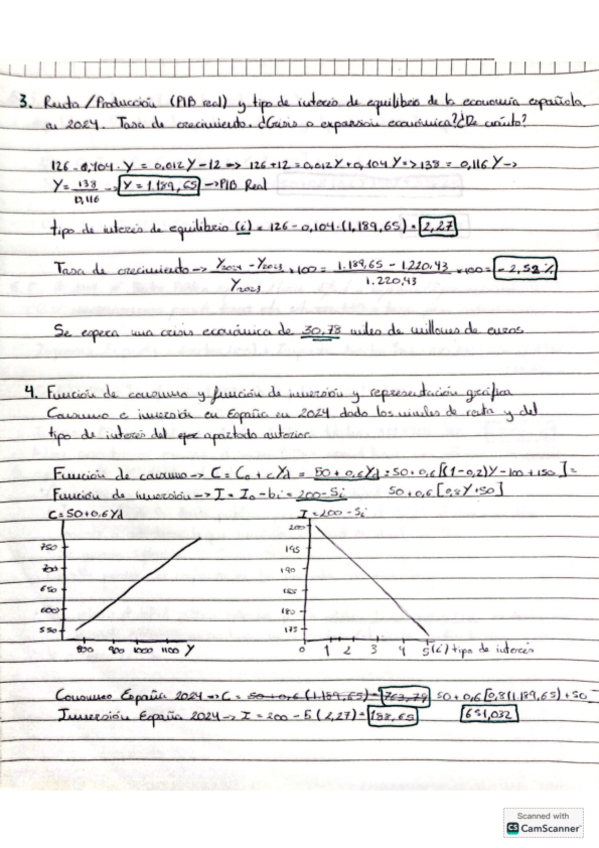 3. Renta/Producción (PIB real) y tipo de interés de equilibrio de la economía española
en 2024. Tasa de crecimiento. ¿Crisis o expansión económica? ¿De cuánto?
126 - 0,104 · Y = 0,012 Y - 12 => 126 + 12 = 0,012 Y + 0,104 Y => 138 = 0,116 Y ->
Y = 138/0,116 -> Y = 1.189,65 -> PIB Real
tipo de interés de equilibrio (i) = 126 - 0,104 · (1.189,65) = 2,27
Tasa de crecimiento -> Y2024 - Y2023 / Y2023 x 100 = 1.189,65 - 1.220,43 / 1.220,43 x 100 = - 2,52 %
Se espera una crisis económica de 30,78 miles de millones de euros
4. Función de consumo y función de inversión y representación gráfica
Consumo e inversión en España en 2024 dado los niveles de renta y del
tipo de interés del apartado anterior
Función de consumo -> C = C0 + cYd = 50 + 0,6Yd = 50 + 0,6[(1-0,2)Y - 100 + 150] =
Función de inversión -> I = I0 - bi = 200 - 5i 50 + 0,6 [0,8 Y + 50]
C = 50 + 0,6 Yd I = 200 - 5i
750
700
650
600
550
800 900 1000 1100 Y
200
195
190
185
180
175
0 1 2 3 4 5 (i) tipo de interés
Consumo España 2024 -> C = 50 + 0,6 (1.189,65) = 763,79 50 + 0,6 [0,8(1.189,65) + 50
Inversión España 2024 -> I = 200 - 5 (2,27) = 188,65 651,032
Scanned with
CS CamScanner